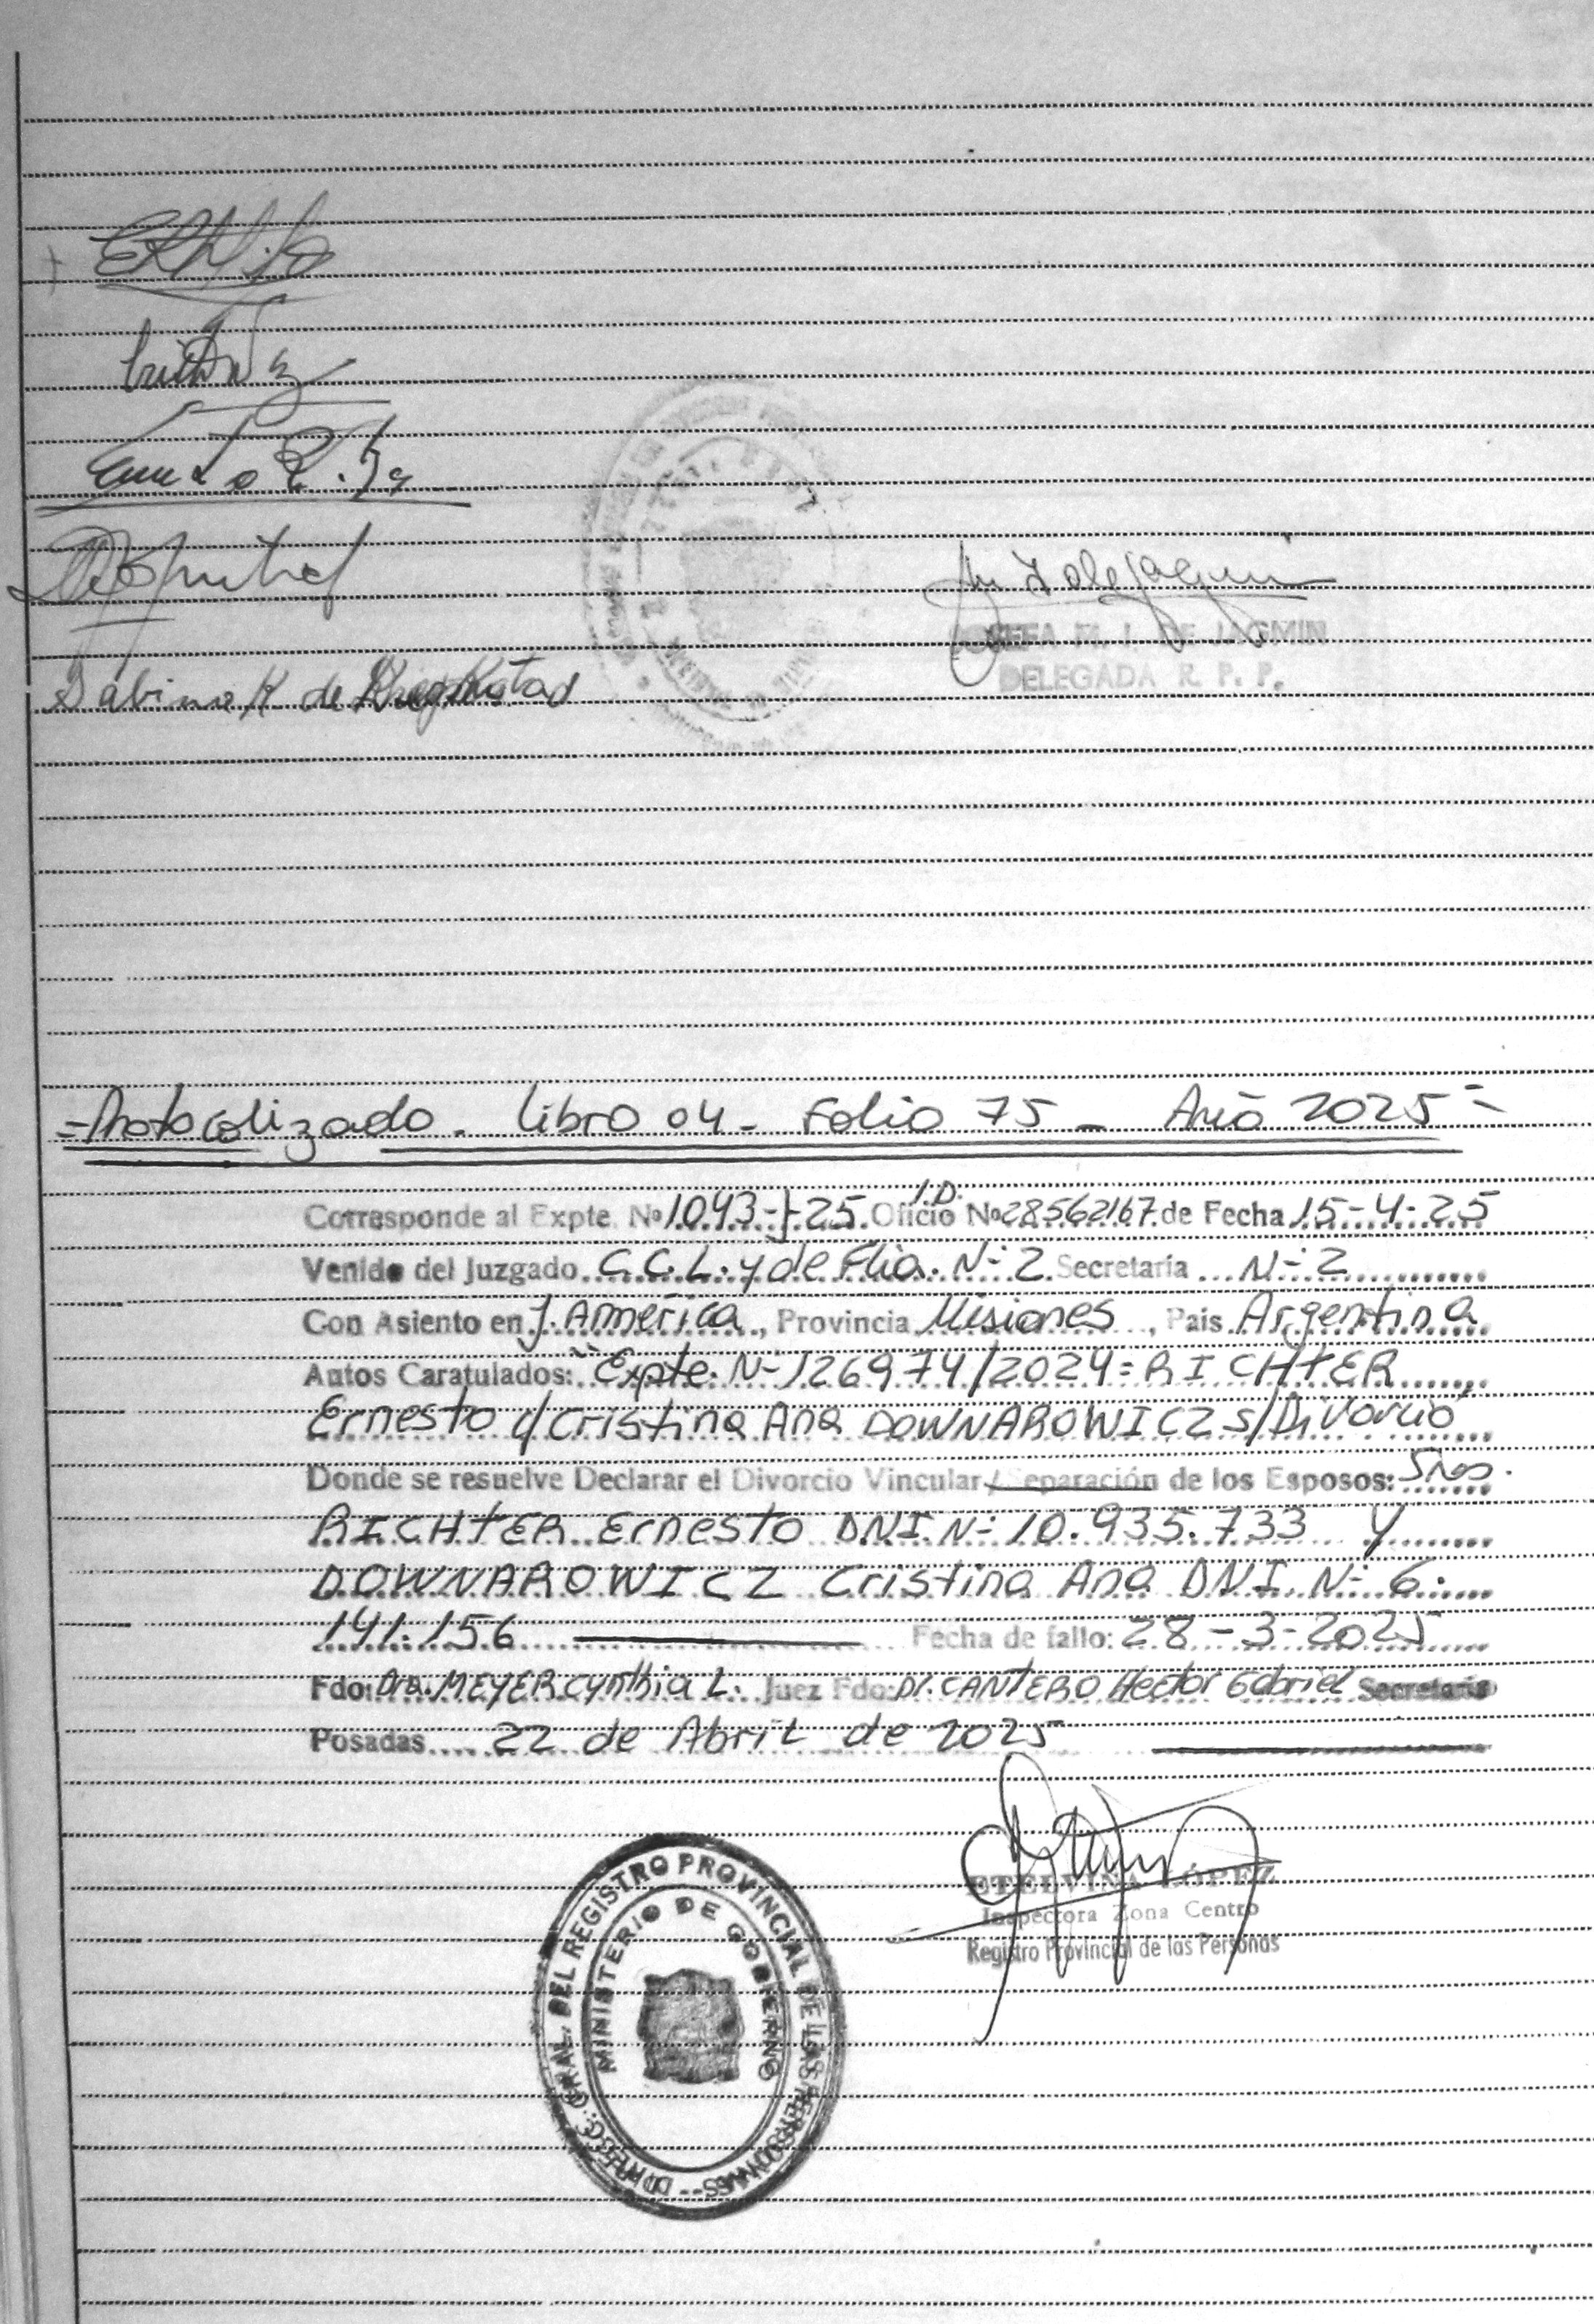 Sabina K. de
DELEGADA R. P. P.
=Protocolizado. Libro 04- Folio 75 - Año 2025=
Corresponde al Expte. Nº 1043-J-25 Oficio I.D. Nº 28562167 de Fecha 15-4-25
Venido del Juzgado C.C.L. y de Flia. Nº 2 Secretaría Nº 2
Con Asiento en J. América, Provincia Misiones, País Argentina
Autos Caratulados: "Expte. Nº 126974/2024= RICHTER
Ernesto c/ Cristina Ana DOWNAROWICZ s/Divorcio"
Donde se resuelve Declarar el Divorcio Vincular / Separación de los Esposos: Sres.
RICHTER Ernesto DNI Nº 10.935.733 y
DOWNAROWICZ Cristina Ana DNI Nº 6.
141.156 Fecha de fallo: 28-3-2025
Fdo: Dra. MEYER Cynthia L. Juez Fdo: Dr. CANTERO Hector Gabriel Secretario
Posadas 22 de Abril de 2025
ETELVINA LÓPEZ
Inspectora Zona Centro
Registro Provincial de las Personas
DIRECC. GRAL. DEL REGISTRO PROVINCIAL DE LAS PERSONAS
MINISTERIO DE GOBIERNO